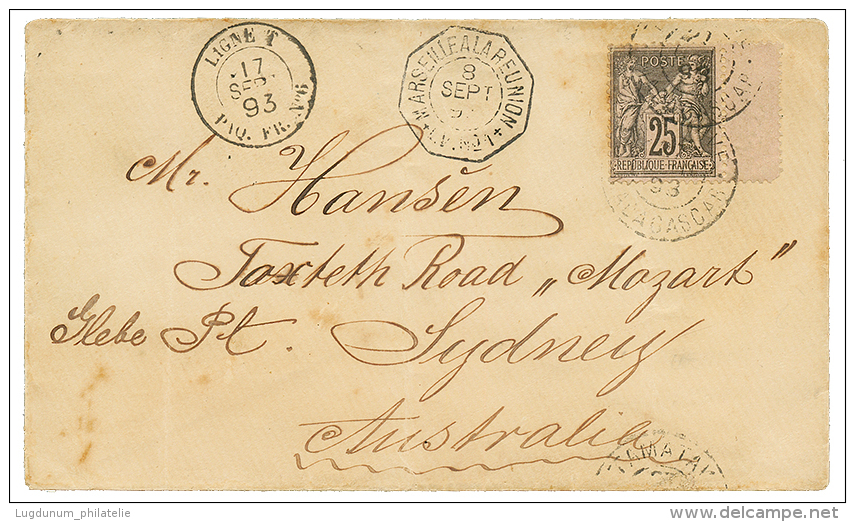 LIGNE T
17
SEP.
93
PAQ. FR. N°6
MARSEILLE A LA REUNION
8
SEPT
L.V. N°1
POSTE
25
REPUBLIQUE FRANÇAISE
93
MADAGASCAR
Mr. Hansen
Toxteth Road „Mozart"
Glebe Pt. Sydney
Australia
TAMATAVE
Lugdunum_philatelie
delcampe.net